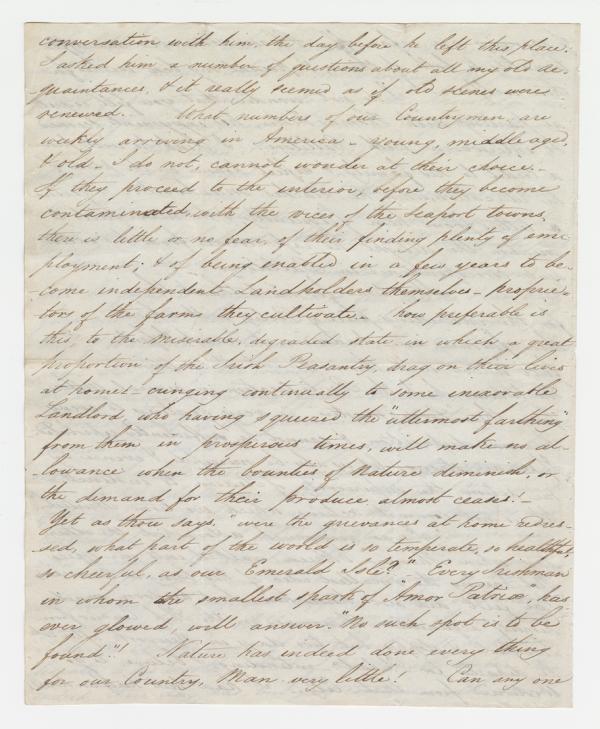 conversation with him, the day before he left this place.
I asked him a number of questions about all my old ac-
quaintances, & it really seemed as if old scenes were
renewed. What numbers of our Countrymen are
weekly arriving in America - young, middle aged,
& old - I do not, cannot wonder at their choice. -
If they proceed to the interior, before they become
contaminated, with the vices of the seaport towns,
there is little or no fear, of their finding plenty of em-
ployment; & of being enabled in a few years to be-
come independent Landholders themselves - proprie-
tors of the farms they cultivate. - how preferable is
this, to the miserable, degraded state in which a great
proportion of the Irish Peasantry, drag on their lives
at home! - cringing continually to some inexorable
Landlord who having squeezed the "uttermost farthing"
from them in prosperous times, will make no al-
lowance when the bounties of Nature diminish, or
the demand for their produce almost ceases! -
Yet as thou says, "were the grievances at home redres-
sed, what part of the world is so temperate, so healthful,
so cheerful, as our Emerald Isle?" - Every Irishman
in whom the smallest spark of "Amor Patriæ, has
ever glowed, will answer. "No such spot is to be
found."! Nature has indeed done every thing
for our Country, Man very little! Can any one